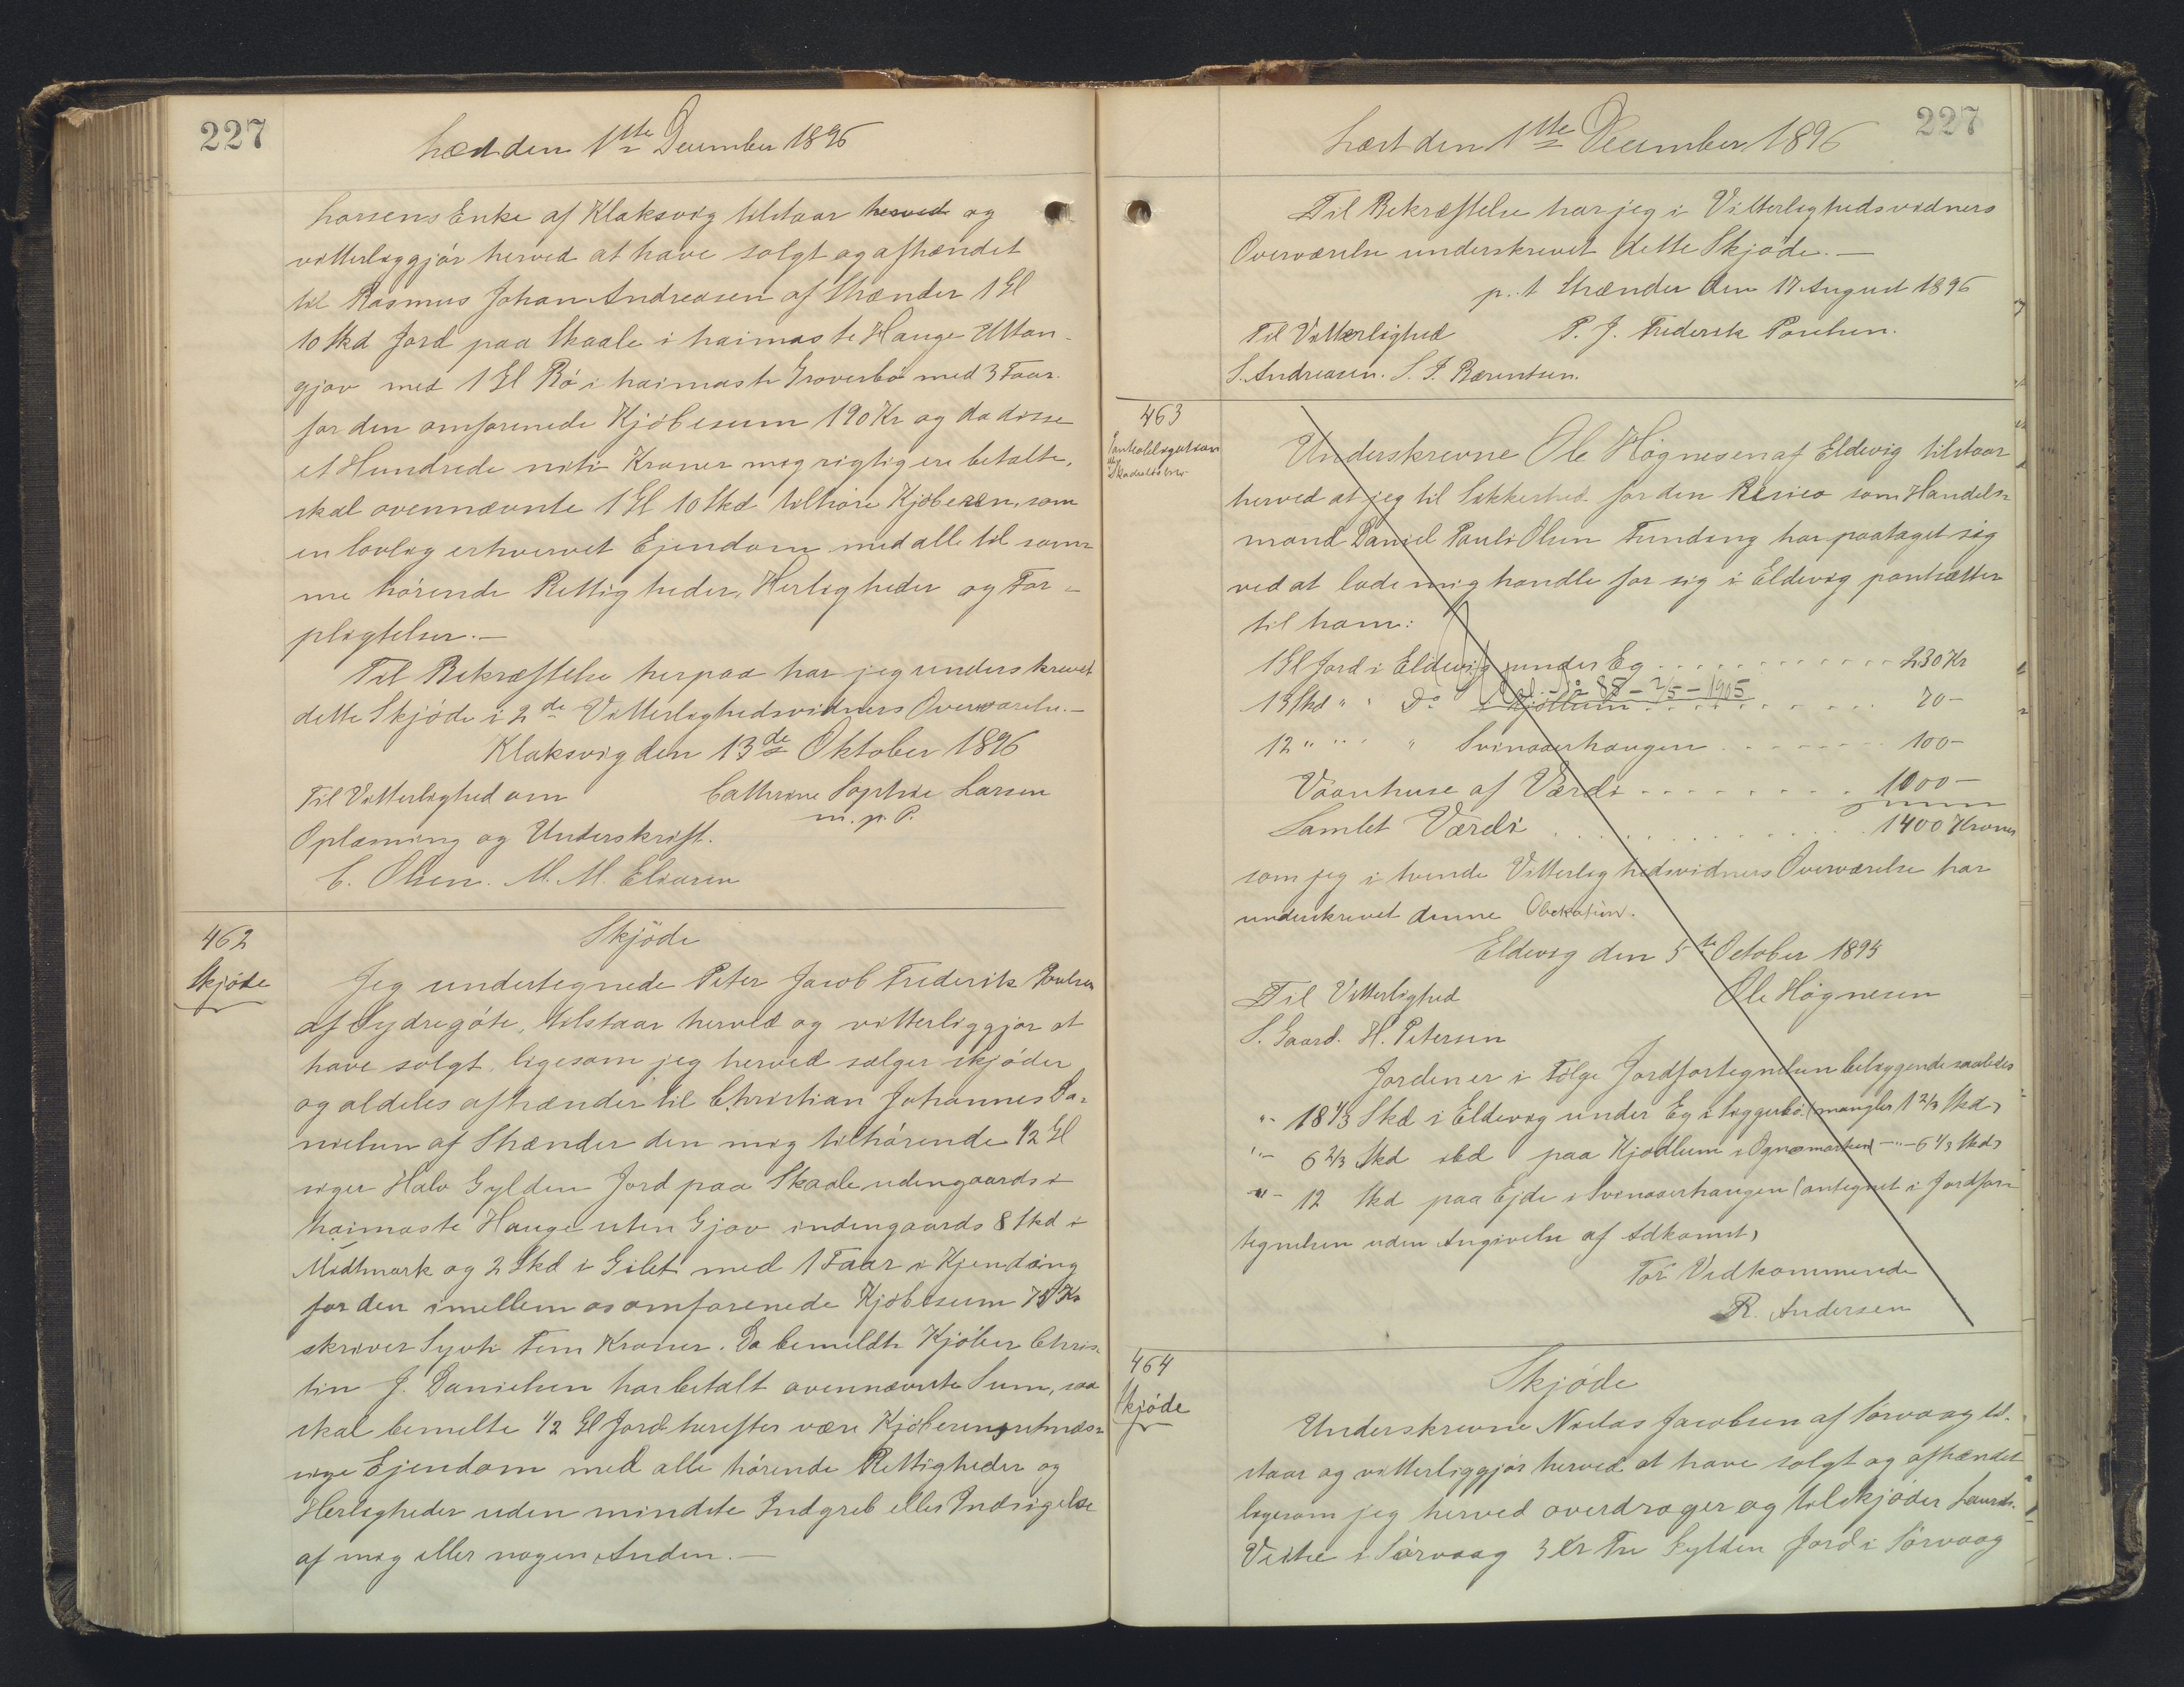 227
Læst den 1ste December 1896
Larsens Enke af Klaksvig tilstaar herved og
vitterliggjør herved at have solgt og afhændet
til Rasmus Johan Andreasen af Strænder 1 Gl
10 Skd Jord paa Skaale i haimaste Hauge Uttan-
gjov med 1 Gl Bø i haimaste Groverbø med 3 Faar.
for den omforenede Kjøbesum 190 Kr og da disse
et Hundrede niti Kroner mig rigtig ere betalte,
skal ovennævnte 1 Gl 10 Skd tilhøre Kjøberen, som
en lovlig erhvervet Ejendom med alle til sam-
me hørende Rettigheder, Herligheder og For-
pligtelser.—
Til Bekræftelse herpaa har jeg underskrevet
dette Skjøde i 2de Vitterlighedsvidners Overværelse.—
Klaksvig den 13de Oktober 1896
Til Vitterlighed om Cathrine Sophie Larsen
Oplæsning og Underskrift. m. p. P.
C. Olsen. M. M. Eliasen
462 Skjøde
Skjøde Jeg undertegnede Peter Jacob Frederik Poulsen
af Sydregøte, tilstaar herved og vitterliggjør at
have solgt, ligesom jeg herved sælger skjøder
og aldeles afhænder til Christian Johannes Da-
nielsen af Strænder den mig tilhørende 1/2 Gl
siger Halv Gylden Jord paa Skaale udengaards i
haimaste Hauge uten Gjov indengaards 8 Skd i
Midtmark og 2 Skd i Gilet med 1 Faar i Kjendång
for den imellem os omforenede Kjøbesum 75 Kr
skriver Syvti Fem Kroner. Da bemeldte Kjøber Chris-
tin J. Danielsen har betalt ovennævnte Sum, saa
skal bemelte 1/2 Gl Jord herefter være Kjøberens retmæs-
sige Ejendom med alle hørende Rettigheder og
Herligheder uden mindste Indgreb eller Indsigelse
af mig eller nogen Anden.—
Læst den 1ste December 1896 227
Til Bekræftelse har jeg i Vitterlighedsvidners
Overværelse underskrevet dette Skjøde.—
p. t Strænder den 17 August 1896
Til Vitterlighed P. J. Frederik Poulsen.
S. Andreasen. S. P. Berentsen.
463
Pantobligation
Skadesløsbrev
Underskrevne Ole Högnesen af Eldevig tilstaar
herved at jeg til Sikkerhed for den Risico som Handels-
mand Daniel Pauli Olsen Funding har paataget sig
ved at lade mig handle for sig i Eldevig pantsætter
til ham:
1 Gl Jord i Eldevig under Eg 230 Kr
13 Skd " " Do i Kjøllum 70 -
No 88 - 2/5 - 1905
12 " " " Svinaaerhaugen 100 -
Vaanhuse af Værdi 1000 -
Samlet Værdi 1400 Kroner
som jeg i tvende Vitterlighedsvidners Overværelse har
underskrevet denne Obligation.
Eldevig den 5te October 1895
Til Vitterlighed Ole Högnesen
S. Gaard. H. Petersen
Jorden er i Følge Jordfortegnelsen beliggende saaledes
"- 18 1/3 Skd i Eldevig under Eg i Liggerbø (mangler 1 2/3 Skd)
"- 6 2/3 Skd ibd paa Kjødlum i Ognamarken -"- 6 1/3 Skd)
"- 12 Skd paa Ejde i Svinaaerhaugen (antegnet i Jordfor-
tegnelsen uden Angivelse af Adkomst)
For Vedkommende
R. Andersen
464 Skjøde
Skjøde Underskrevne Niclas Jacobsen af Sørvaag til-
staar og vitterliggjør herved at have solgt og afhændet
ligesom jeg herved overdrager og tilskjøder Laurds.
i Sørvaag 3 er Tre Gylden Jord i Sørvaag